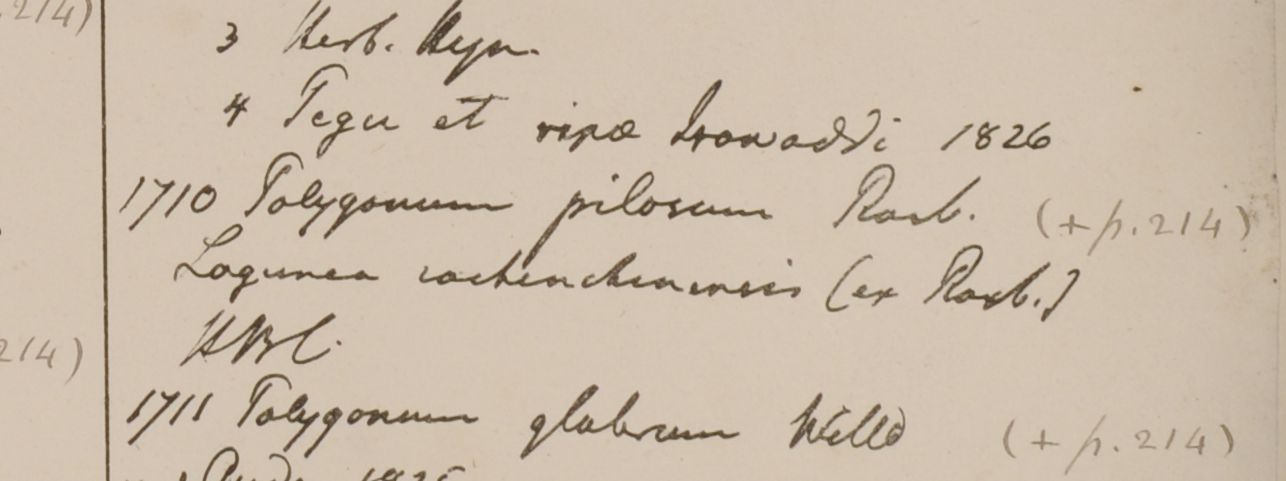 214)
3 Herb. Heyn.
4 Pegu et ripæ Irawaddi 1826
1710 Polygonum pilosum Roxb. (+ p. 214)
Lagunea cochinchinensis (ex Roxb.)
HBC.
214)
1711 Polygonum glabrum Willd (+ p. 214)